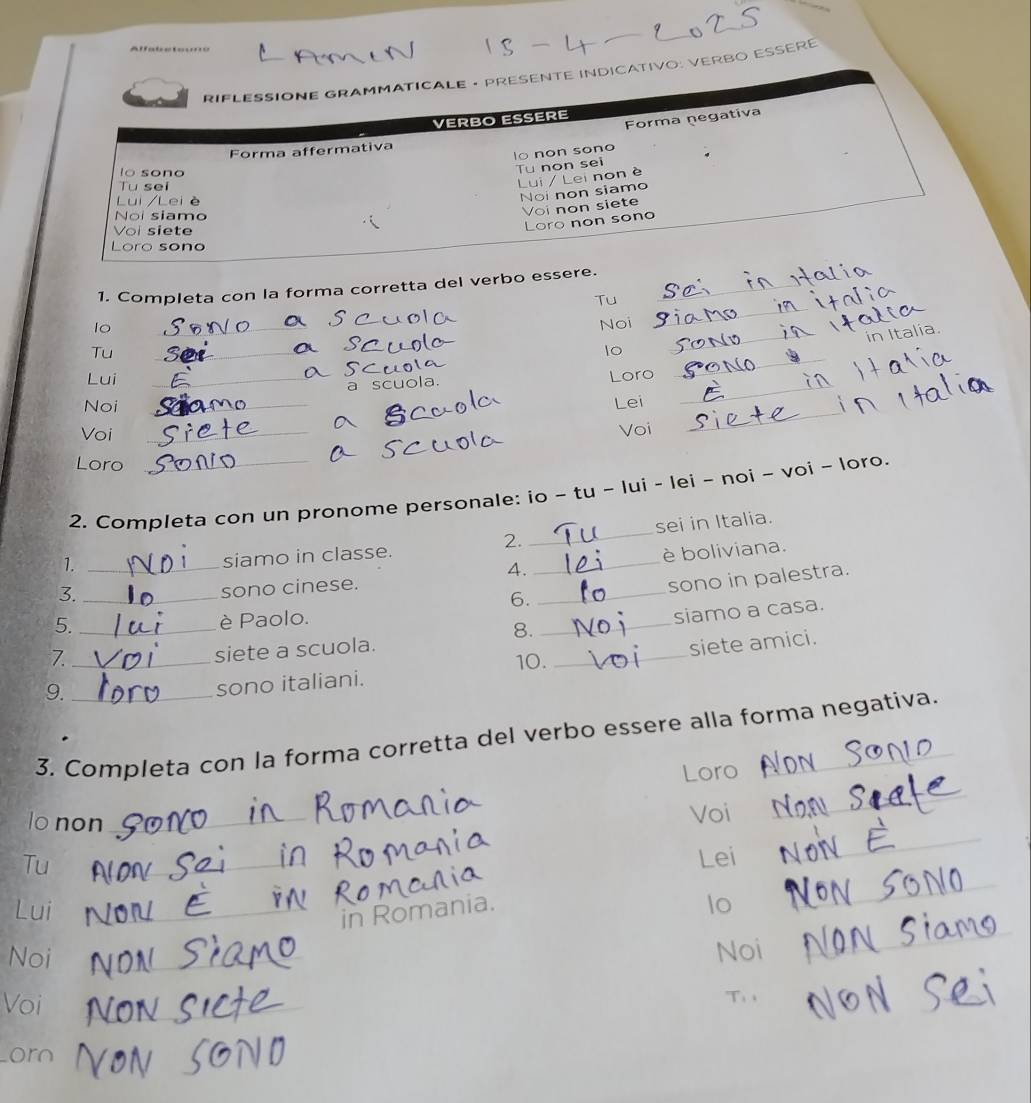 Alfabetouno
LAMIN 15-4-2025
RIFLESSIONE GRAMMATICALE • PRESENTE INDICATIVO: VERBO ESSERE
VERBO ESSERE
Forma affermativa Forma negativa
Io sono Io non sono
Tu sei Tu non sei
Lui /Lei è Lui / Lei non è
Noi siamo Noi non siamo
Voi siete Voi non siete
Loro sono Loro non sono
1. Completa con la forma corretta del verbo essere.
Io SONO a scuola Tu sei in italia
Tu sei a scuola Noi siamo in italia
Lui È a scuola Io SONO in italia
Noi siamo a scuola. Loro SONO in Italia.
Voi siete a scuola Lei È in italia
Loro SONO a scuola Voi siete in italia
2. Completa con un pronome personale: io - tu - lui - lei - noi - voi - loro.
1. NOi siamo in classe. 2. TU sei in Italia.
3. Io sono cinese. 4. lei è boliviana.
5. lui è Paolo. 6. Io sono in palestra.
7. VOi siete a scuola. 8. NOi siamo a casa.
9. loro sono italiani. 10. Voi siete amici.
3. Completa con la forma corretta del verbo essere alla forma negativa.
Io non SONO in Romania Loro NON SONO
Tu NON Sei in Romania Voi NON Siete
Lui NON È iN Romania Lei NON È
Noi NON SiamO in Romania. Io NON SONO
Voi NON Siete Noi NON Siamo
Loro NON SONO NON Sei